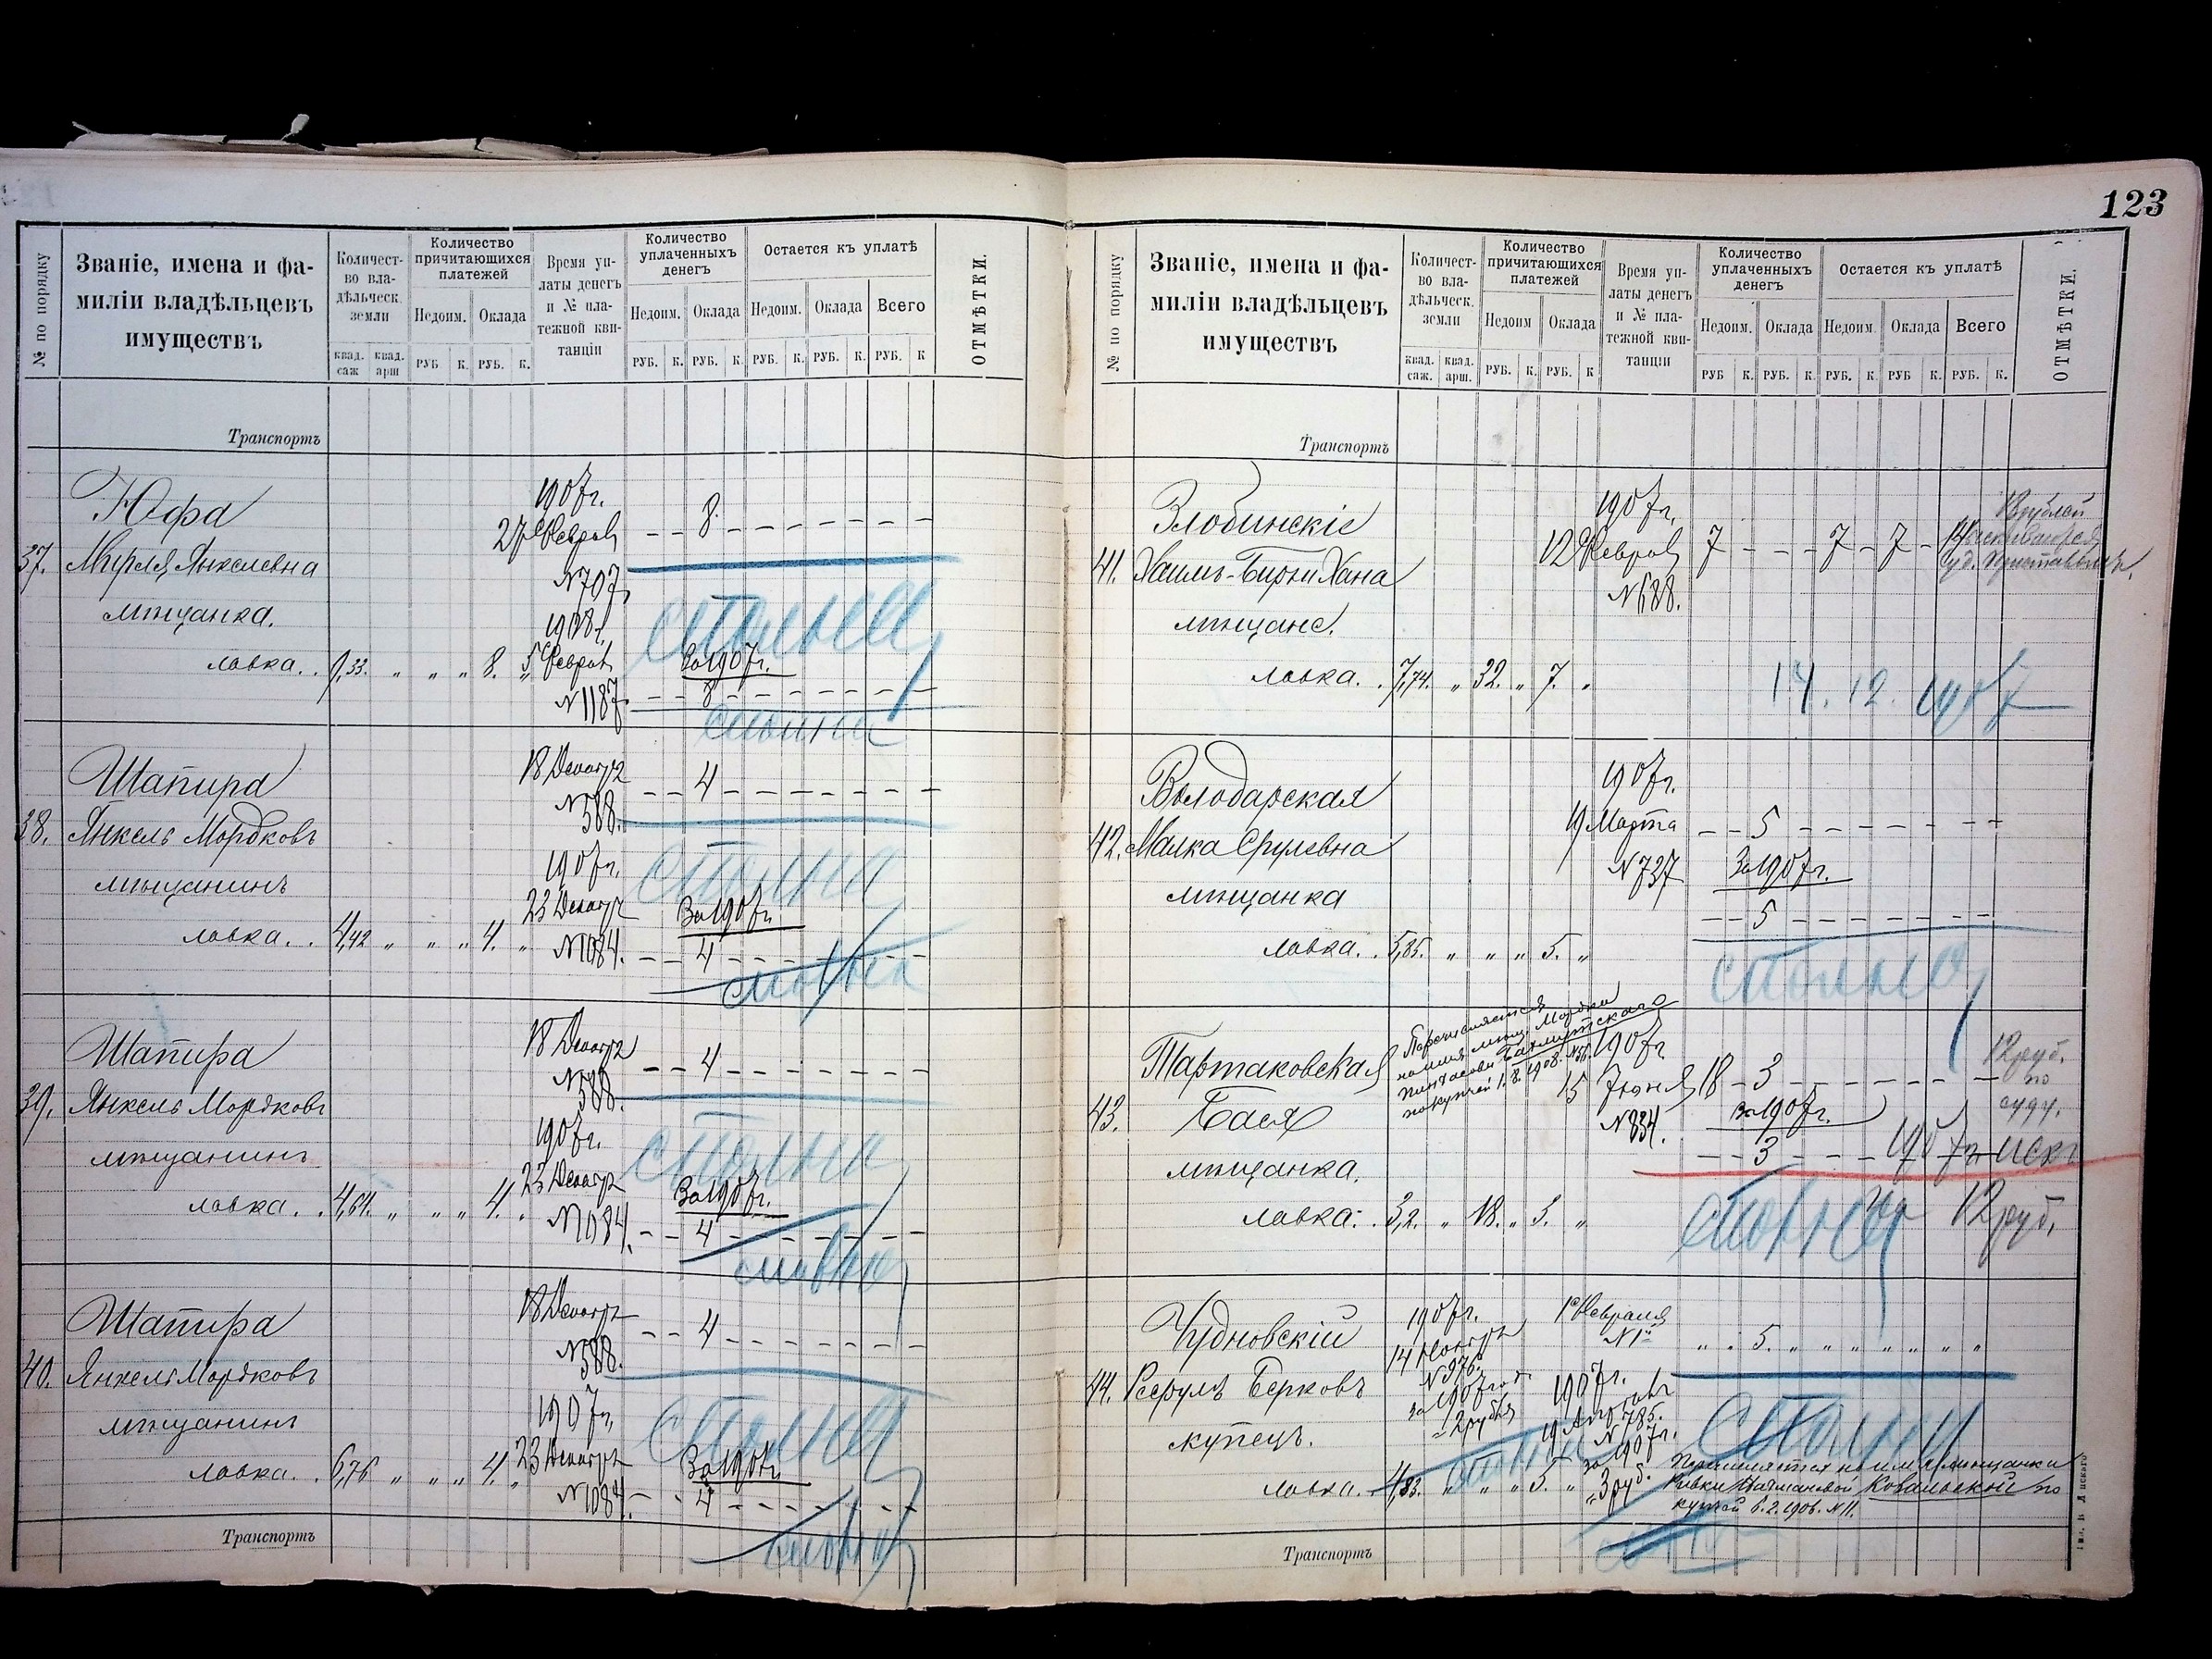 123
№ по порядку
Званіе, имена и фа-
миліи владѣльцевъ
имуществъ
Количест-
во вла-
дѣльческ.
земли
квад. саж
квад. арш
Количество
причитающихся
платежей
Недоим. Оклада
РУБ К. РУБ. К.
Время уп-
латы денегъ
и № пла-
тежной кви-
танціи
Количество
уплаченныхъ
денегъ
Недоим. Оклада
РУБ. К. РУБ. К.
Остается къ уплатѣ
Недоим. Оклада Всего
РУБ. К. РУБ. К. РУБ. К
ОТМѢТКИ.
Транспортъ
Юфа
37. Янкелевна
мѣщанка.
лавка. . 9,33. " " " 8. "
1907г.
27 Феврал
N707
8
1908г.
5 Феврал
N1187.
За 1907г.
8
Шапира
38. Янкель Мордковъ
мѣщанинъ
лавка. . 4,42 " " " 4. "
18 Декабр
N588.
4
1907г.
23 Декабр
N1084.
За 1907г.
4
Шапира
39. Янкель Мордковъ
мѣщанинъ
лавка. . 4,61. " " " 4. "
18 Декабр
N588.
4
1907г.
23 Декабр
N1084.
За 1907г.
4
Шапира
40. Янкель Мордковъ
мѣщанинъ
лавка. . 6,76 " " " 4. "
18 Декабр
N588.
4
1907г.
23 Декабр
N1084.
4
Транспортъ
№ по порядку
Званіе, имена и фа-
миліи владѣльцевъ
имуществъ
Количест-
во вла-
дѣльческ.
земли
квад. саж.
квад. арш.
Количество
причитающихся
платежей
Недоим Оклада
РУБ. К. РУБ. К
Время уп-
латы денегъ
и № пла-
тежной кви-
танціи
Количество
уплаченныхъ
денегъ
Недоим. Оклада
РУБ К. РУБ. К.
Остается къ уплатѣ
Недоим. Оклада Всего
РУБ. К. РУБ К. РУБ. К.
ОТМѢТКИ.
Транспортъ
Злобинскіе
41. Хаимъ-Берко Хана
мѣщане.
лавка. . 7,74. " 32. " 7. "
1907г.
12 Феврал
N688.
7 7 7
14. 12. 1907
Володарская
42. Малка Срулевна
мѣщанка
лавка. . 5,85. " " " 5. "
1907г.
19 Марта
N737
5
За 1907г.
5
Тартаковская
43. Бася
мѣщанка.
лавка. . 3,2. " 18. " 3. "
Перечисляется
на имя мѣщ. Мордки
Пинхасова Бахмутского
по купчей 1. 8. 1908.
1907г
15 Іюня
N834.
18 3
За 1907г.
3
12 руб.
по
1907г иск
12 руб.
Чудновскій
44. Берковъ
купецъ.
лавка. 4,83. " " " 5. "
1907г.
14 Ноябр
N976.
за 1907 год
2 рубля
1 Февраля
N1
5.
1907г.
N785.
за 1907г.
3 руб.
Перечисляется на имя мѣщанки
Ривки Нахмановой Ковальской по
купчей 6. 2. 1906. N11.
Транспортъ